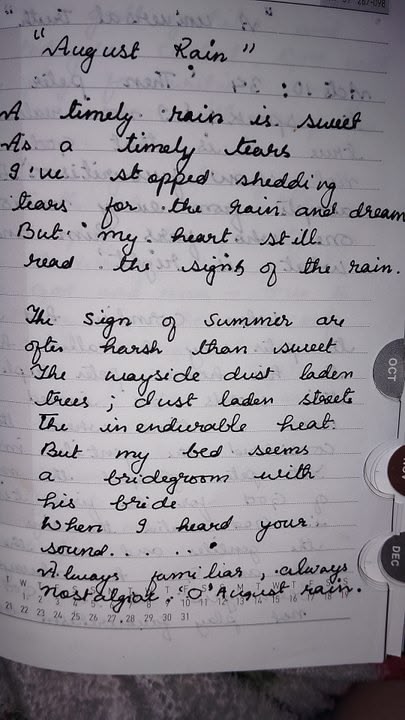 "August Rain"
A timely rain is sweet
As a timely tears
I've stopped shedding
tears for the rain and dream
But my heart still
read the signs of the rain.
The sign of summer are
often harsh than sweet
The wayside dust laden
trees ; dust laden streets
The inendurable heat.
But my bed seems
a bridegroom with
his bride
When I heard your
sound. . . . . . .
Always familiar, always
Nostalgiac. 'O' August rain.
21 22 23 24 25 26 27 28 29 30 31
OCT
DEC